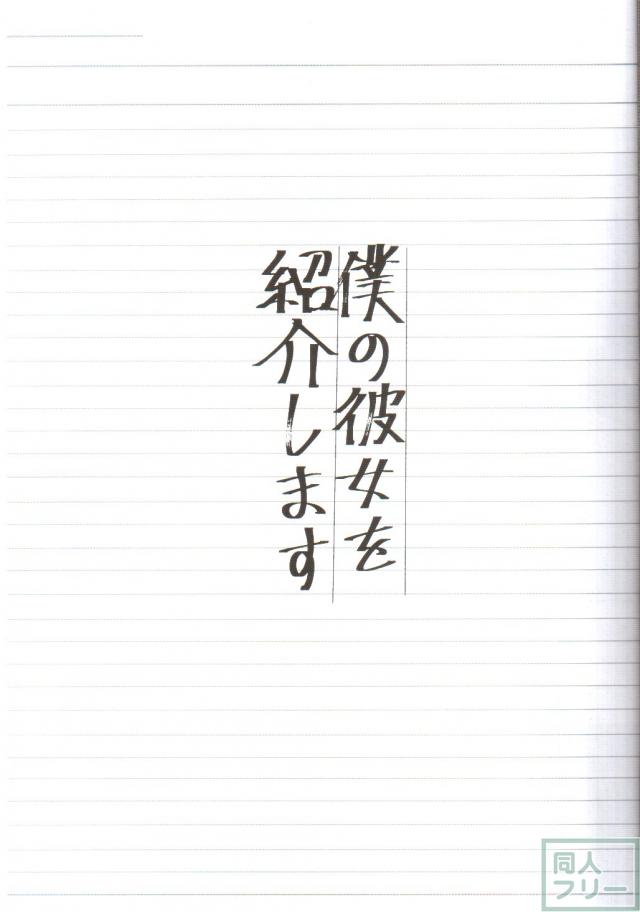 僕の彼女を
紹介します
同人
フリー